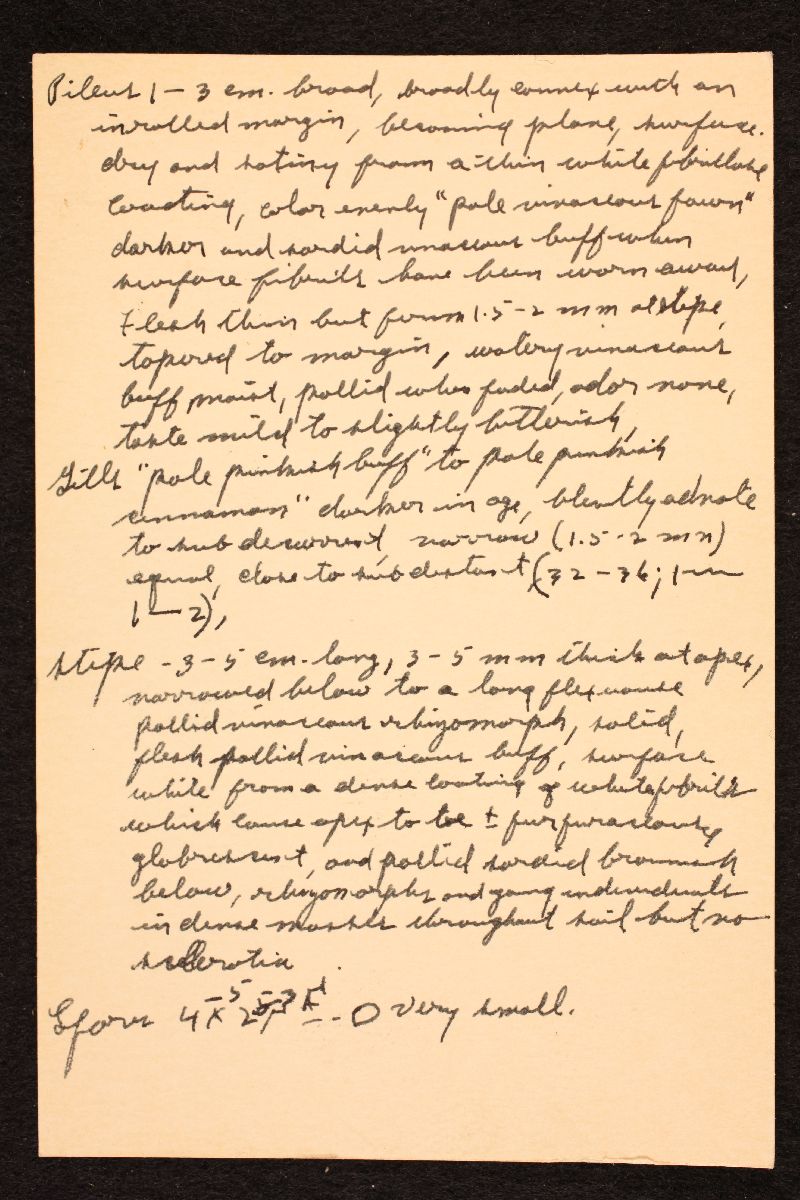 Pileus 1 – 3 cm. broad, broadly convex with an
inrolled margin, becoming plane, surface
dry and satiny from a thin white fibrillose
coating, color evenly "pale vinaceous fawn"
darker and sordid vinaceous buff when
surface fibrils have been worn away,
Flesh thin but firm 1.5 - 2 mm at stipe,
tapered to margin, watery vinaceous
buff, moist, pallid when faded, odor none,
taste mild to slightly bitterish,
Gills "pale pinkish buff" to pale pinkish
cinnamon" darker in age, bluntly adnate
to subdecurrent, narrow (1.5 - 2 mm)
equal, close to subdistant (32 – 36; 1 —
1 — 2),
Stipe - 3 - 5 cm. long, 3 - 5 mm thick at apex,
narrowed below to a long flexuous
pallid vinaceous rhizomorph, solid,
flesh pallid vinaceous buff, surface
white from a dense coating of white fibrils
which cause apex to be ± furfuraceous,
glabrescent, and pallid sordid brownish
below, rhizomorphs and young individuals
in dense masses throughout soil but no
sclerotia.
Spores 4 - 5 x 2.5 - 3 very small.